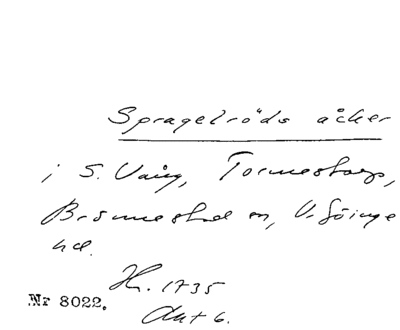 Spragelröds åker
i S. Vång, Tormestorp,
Brönnestad sn, V. Göinge
hd.
Hs. 1735
Akt 6.
Nr 8022.